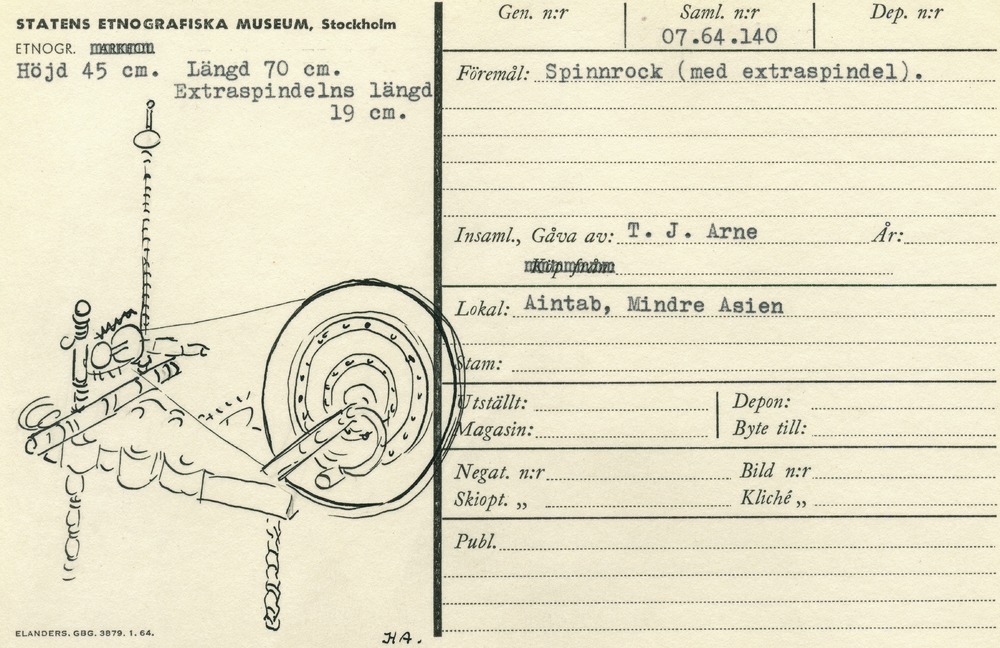 STATENS ETNOGRAFISKA MUSEUM, Stockholm
ETNOGR.
Höjd 45 cm. Längd 70 cm.
Extraspindelns längd
19 cm.
ELANDERS. GBG. 3879. 1. 64.
HA.
Gen. n:r Saml. n:r Dep. n:r
07.64.140
Föremål: Spinnrock (med extraspindel).
Insaml., Gåva av: T. J. Arne År:
Köp från
Lokal: Aintab, Mindre Asien
Stam:
Utställt: Depon:
Magasin: Byte till:
Negat. n:r Bild n:r
Skiopt. „ Kliché „
Publ.